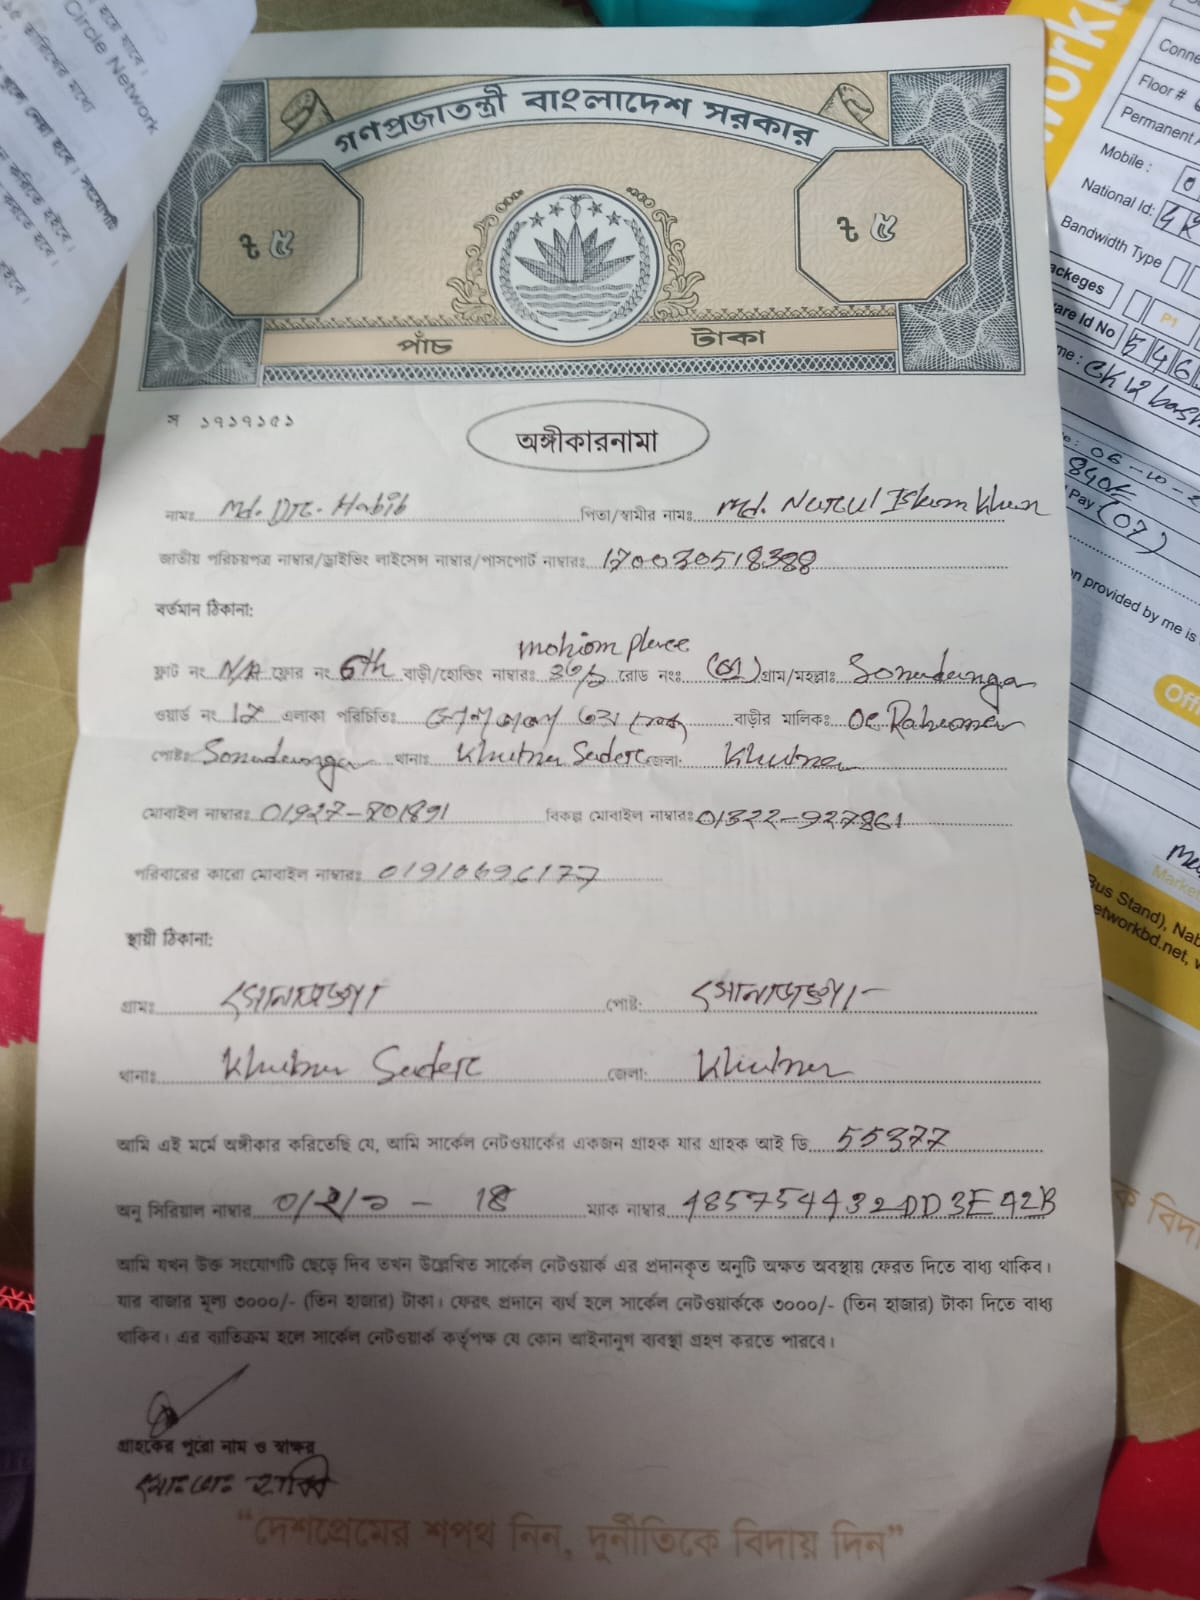 গণপ্রজাতন্ত্রী বাংলাদেশ সরকার
৳ ৫
৳ ৫
পাঁচ টাকা
স ১৭১৭১৫১
অঙ্গীকারনামা
নামঃ Md. Habib পিতা/স্বামীর নামঃ Md. Nurul Islam Khan
জাতীয় পরিচয়পত্র নাম্বার/ড্রাইভিং লাইসেন্স নাম্বার/পাসপোর্ট নাম্বারঃ 170030518388
বর্তমান ঠিকানা:
ফ্লাট নং N/A ফ্লোর নং 6th বাড়ী/হোল্ডিং নাম্বারঃ রোড নংঃ গ্রাম/মহল্লাঃ Sonadanga
ওয়ার্ড নং এলাকা পরিচিতিঃ বাড়ীর মালিকঃ
পোষ্টঃ Sonadanga থানাঃ Khulna Sadar জেলা: Khulna
মোবাইল নাম্বারঃ 01927-801891 বিকল্প মোবাইল নাম্বারঃ 01322-927861
পরিবারের কারো মোবাইল নাম্বারঃ 01910696177
স্থায়ী ঠিকানা:
গ্রামঃ সোনাডাঙ্গা পোষ্ট: সোনাডাঙ্গা
থানাঃ Khulna Sadar জেলা: Khulna
আমি এই মর্মে অঙ্গীকার করিতেছি যে, আমি সার্কেল নেটওয়ার্কের একজন গ্রাহক যার গ্রাহক আই ডি 55377
অনু সিরিয়াল নাম্বার ম্যাক নাম্বার 485754432DD3E42B
আমি যখন উক্ত সংযোগটি ছেড়ে দিব তখন উল্লেখিত সার্কেল নেটওয়ার্ক এর প্রদানকৃত অনুটি অক্ষত অবস্থায় ফেরত দিতে বাধ্য থাকিব।
যার বাজার মূল্য ৩০০০/- (তিন হাজার) টাকা। ফেরৎ প্রদানে ব্যর্থ হলে সার্কেল নেটওয়ার্ককে ৩০০০/- (তিন হাজার) টাকা দিতে বাধ্য
থাকিব। এর ব্যতিক্রম হলে সার্কেল নেটওয়ার্ক কর্তৃপক্ষ যে কোন আইনানুগ ব্যবস্থা গ্রহণ করতে পারবে।
গ্রাহকের পুরো নাম ও স্বাক্ষর
"দেশপ্রেমের শপথ নিন, দুর্নীতিকে বিদায় দিন"
Circle Network
Floor #
Permanent
Mobile :
National Id:
Bandwidth Type
P1
provided by me is
Bus Stand),